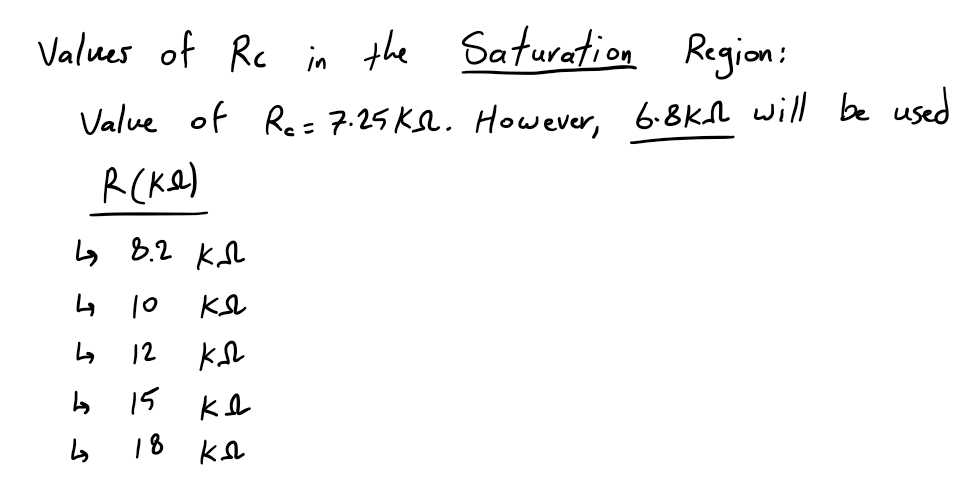 Values of Rc in the Saturation Region:
Value of Rc = 7.25KΩ. However, 6.8KΩ will be used
R(KΩ)
↳ 8.2 KΩ
↳ 10 KΩ
↳ 12 KΩ
↳ 15 KΩ
↳ 18 KΩ